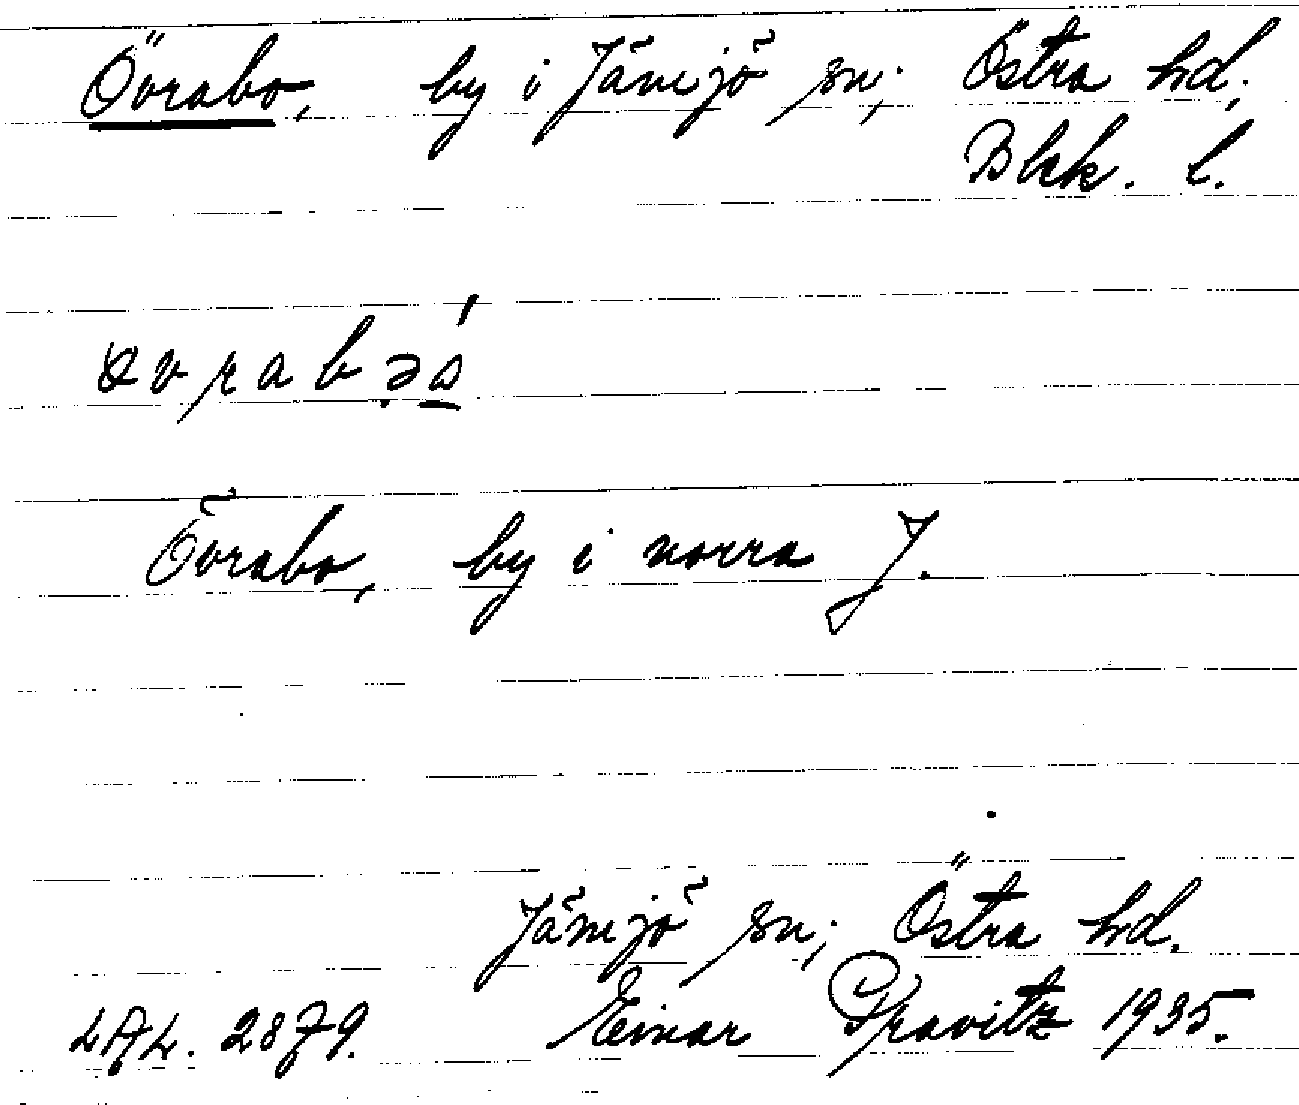 Övrabo, by i Jämjö sn; Östra hd;
Blek. l.
Övrabo, by i norra J.
Jämjö sn; Östra hd.
LAL. 2879. Einar Gravitz 1935.